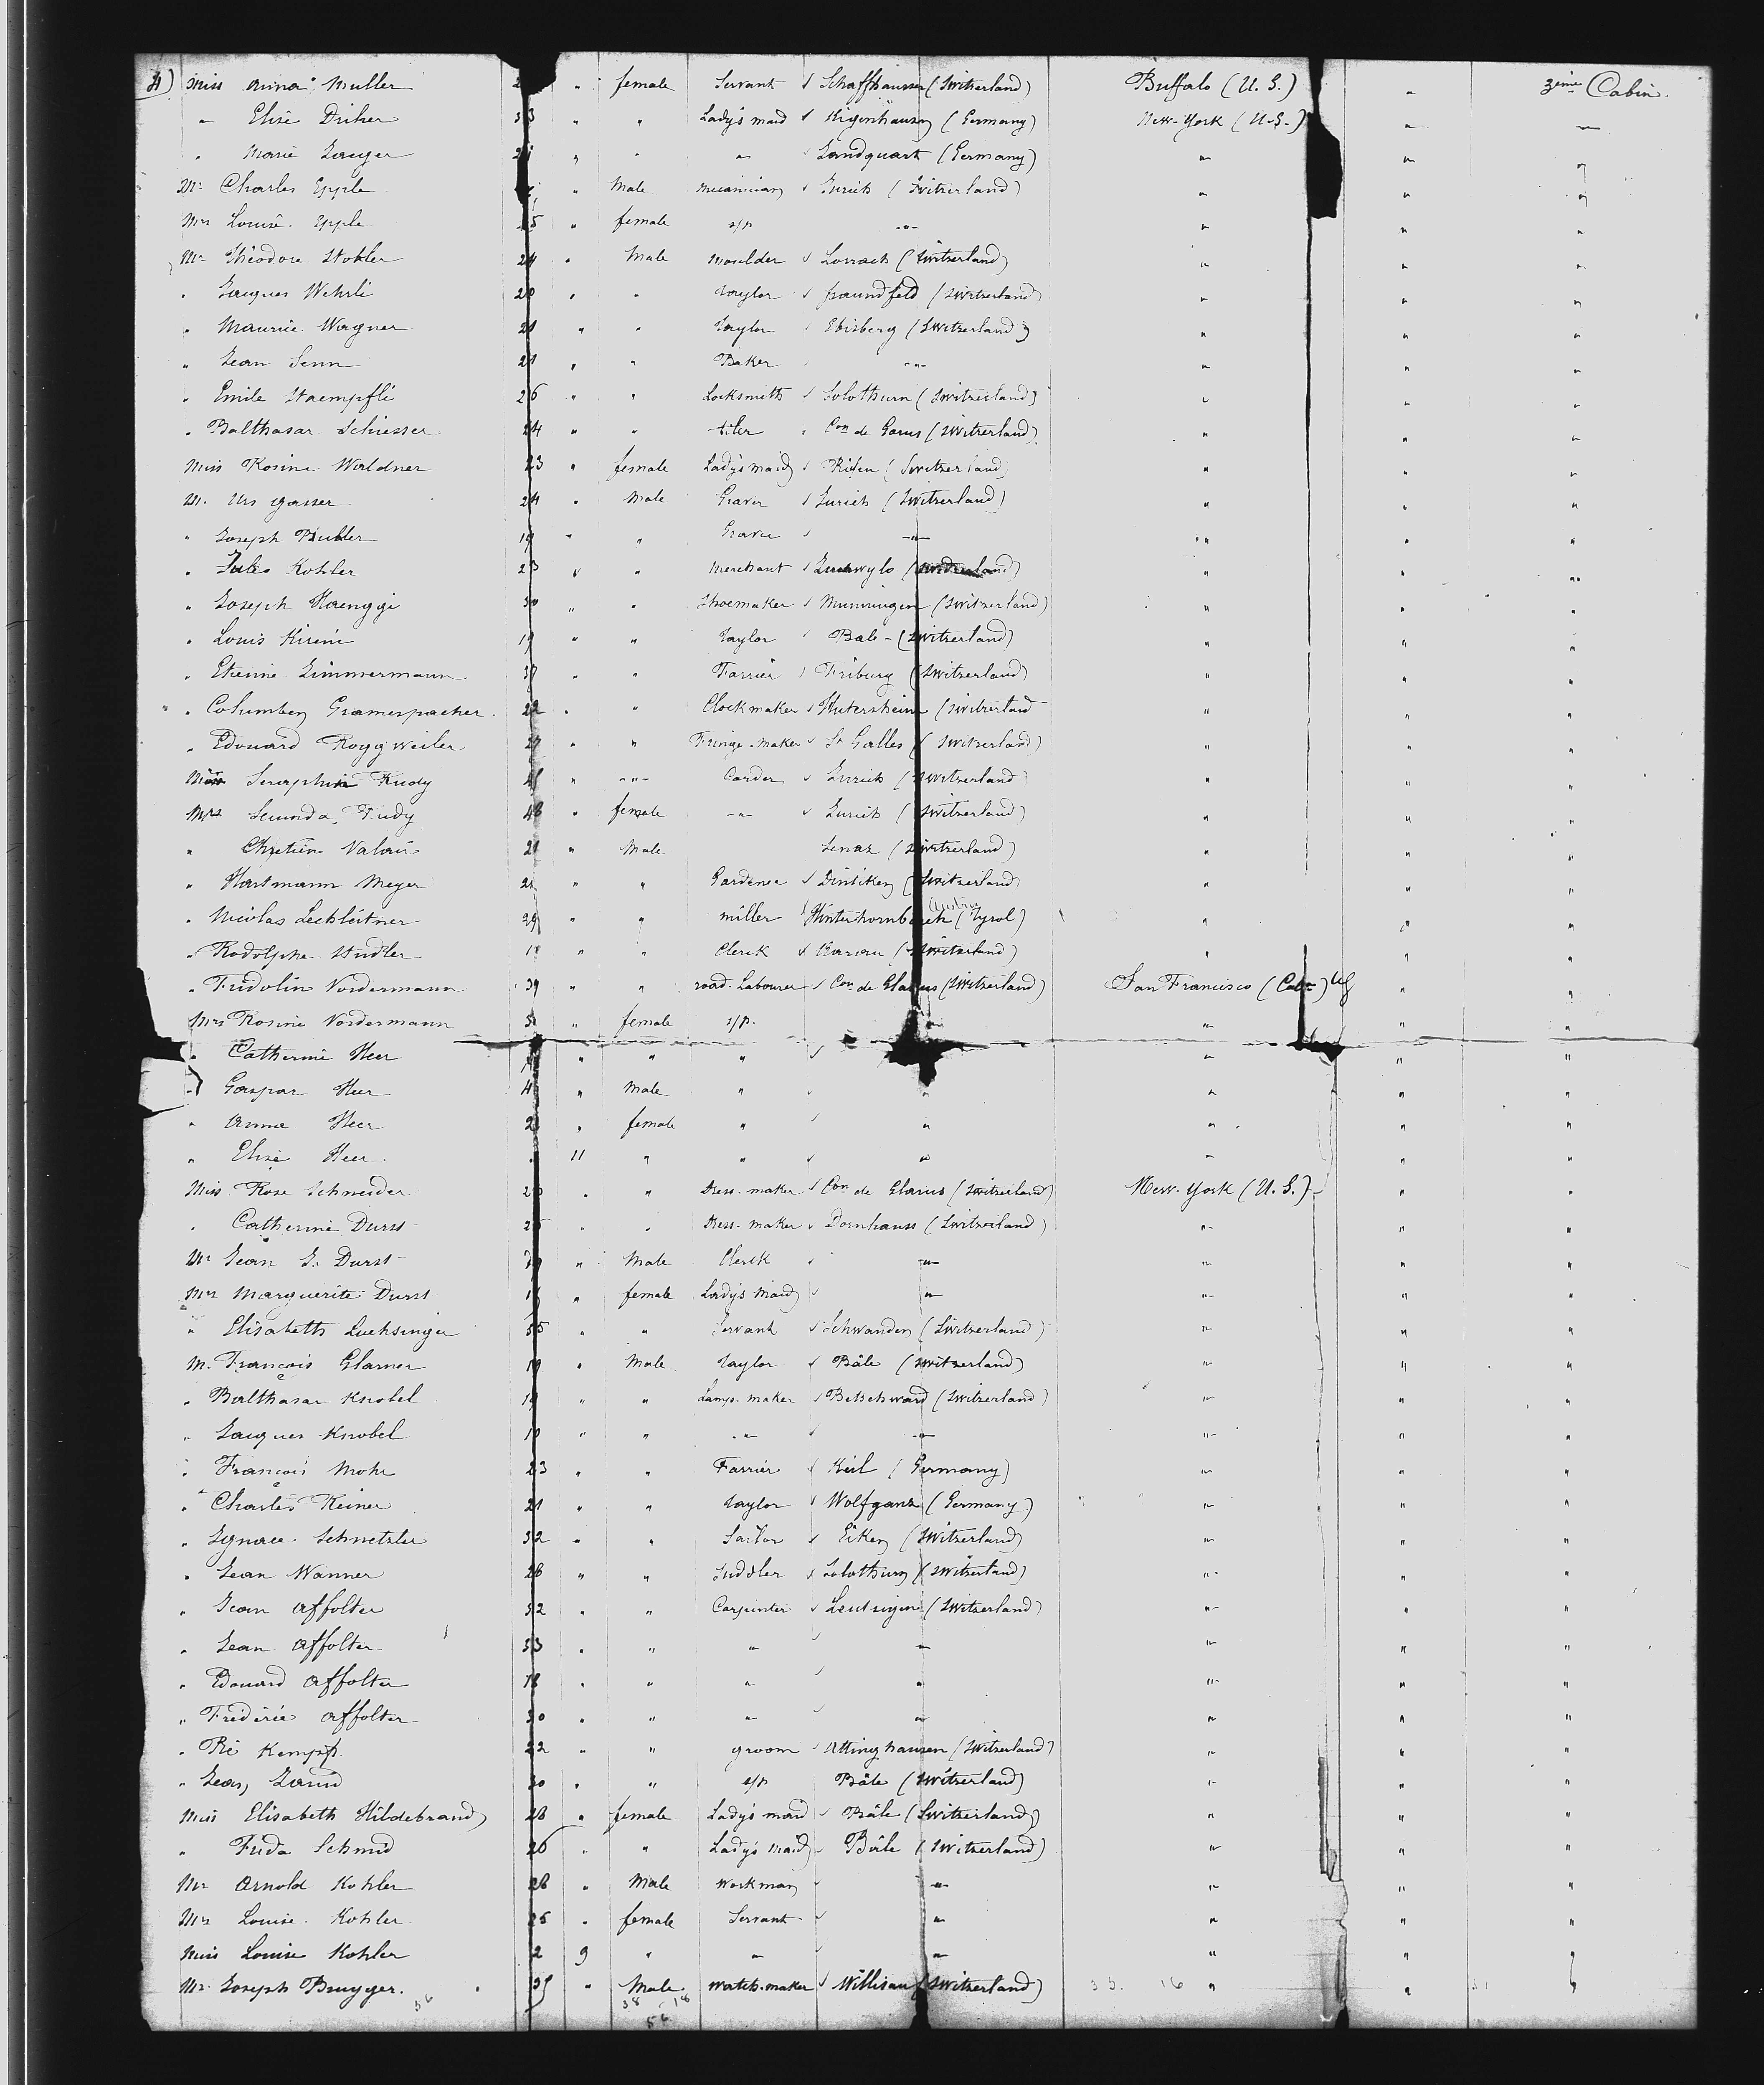 4) Miss Anna Muller 2 " female Servant Schaffhausen (Switzerland) Buffalo (U. S.) " 3ième Cabin.
" Elise 33 " " Lady's maid (Germany) New-York (U.S.) " "
" Marie " " " Landquart (Germany) " " "
Mr Charles Epple " Male mecanician Zurich (Switzerland) " " "
Mrs Louise Epple 25 " female s/p " " " "
Mr Théodore Stohler 24 " Male moulder Lorrach (Switzerland) " " "
" Jacques Wehrli 20 " " Taylor fraundfeld (Switzerland) " " "
" Maurice Wagner 21 " " Taylor Ebisberg (Switzerland) " " "
" Jean Senn 21 " " Baker " " " "
" Emile Staempfli 26 " " Locksmith Solothurn (Switzerland) " " "
" Balthasar Schiesser 24 " " tiler Con de Garus (Switzerland) " " "
Miss Rosine Waldner 23 " female Lady's maid (Switzerland) " " "
M. Urs Gasser 24 " Male Graver Zurich (Switzerland) " " "
" Joseph Buhler 19 " " Graver " " " "
" Jules Kohler 23 " " Merchant (Switzerland) " " "
" Joseph Haenggi 30 " " Shoemaker Munningen (Switzerland) " " "
" Louis 19 " " Taylor Bale - (Switzerland) " " "
" Etienne Zimmermann 37 " " Farrier Friburg (Switzerland) " " "
" Columben Gramespacher 22 " " Clockmaker (Switzerland " " "
" Edouard Roggweiler 27 " " Fringe-maker St Galles (Switzerland) " " "
Seraphin Rudy " " Carder Zurich (Switzerland " " "
Mrs Secunda Rudy 48 " female " Zurich (Switzerland) " " "
" Chretien 21 " Male (Switzerland) " " "
" Hartmann Meyer 21 " " Gardener Dintiken (Switzerland " " "
Austria
" Nicolas Lechleitner 29 " " miller Hinterhornbach (Tyrol) " " "
" Rodolphe Studler " " Clerck Aarau (Switzerland) " " "
" Fridolin Vordermann 39 " " road-Labourer Con de Glarus (Switzerland) San Francisco (Cal) US " "
Mrs Rosine Vordermann " female s/p. " " " "
" Catherine Heer " " " " " "
" Gaspar Heer 4 " Male " " " " "
" Anna Heer 2 " female " " " " "
" Elise Heer . 11 " " " " " "
Miss Rose Schneider 2 " " Dress-maker Con de Glarus (Switzerland) New-York (U. S.) " "
" Catherine Durst 2 " " Dress-maker Dornhauss (Switzerland) " " "
Mr Jean J. Durst " Male Clerck " " " "
Mrs Marguerite Durst " female Lady's Maid " " " "
" Elisabeth Luchsinger 55 " " Servant Schwanden (Switzerland) " " "
M. François Glarner 19 " Male Taylor Bâle (Switzerland) " " "
" Balthasar Knobel 19 " " Lamp-maker Betschward (Switzerland) " " "
" Jacques Knobel " " " " " " "
" François Mohr 23 " " Farrier Keil (Germany) " " "
" Charles Reiner 21 " " Taylor Wolfganz (Germany) " " "
" Ignace Schnetzler 32 " " Sailor Eiken (Switzerland) " " "
" Jean Wanner 28 " " Solothurn (Switzerland) " " "
" Jean Affolter 52 " " Carpenter Leutzigen (Switzerland) " " "
" Jean Affolter 53 " " " " " " "
" Edouard Affolter 18 " " " " " " "
" Fréderic Affolter 30 " " " " " " "
" Kempf. 22 " " groom Attinghausen (Switzerland) " " "
" Jean 30 " " s/p Bâle (Switzerland) " " "
Miss Elisabeth Hildebrand 28 " female Lady's maid Bâle (Switzerland) " " "
" Frida Schmid 26 " " Lady's Maid Bâle (Switzerland) " " "
Mr Arnold Kohler 28 " Male Workman " " " "
Mrs Louise Kohler 25 " female Servant " " " "
Miss Louise Kohler 2 9 " " " " " "
Mr Joseph Bruyger. " Male Watch-maker Willisau (Switzerland) 33. 16 " " "
56 38 18
56